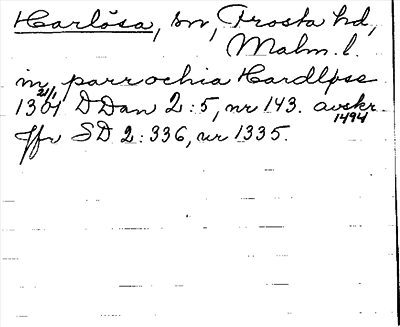 Harlösa, sn, Frosta hd,
Malm. l.
in parrochia Hardløse
1301 21/1 DDan 2:5, nr 143. avskr. 1494
Jfr SD 2:336, nr 1335.